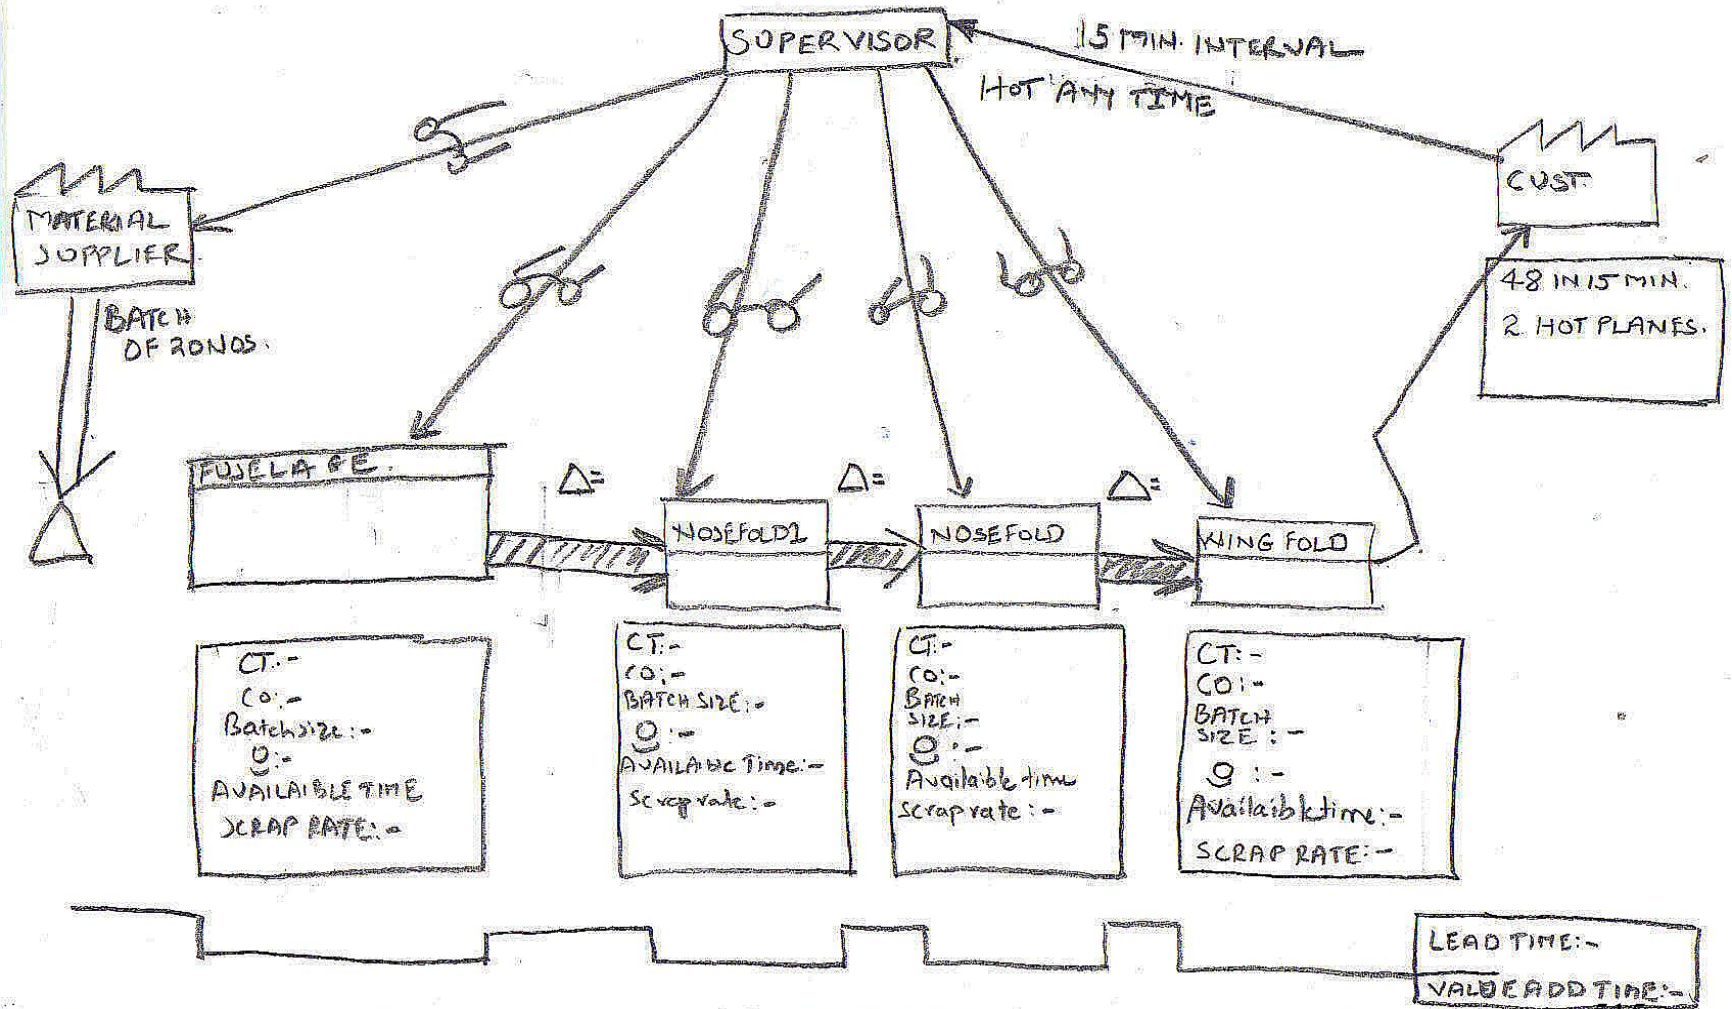 SUPERVISOR
15 MIN. INTERVAL
HOT ANY TIME
CUST.
MATERIAL
SUPPLIER.
48 IN 15 MIN.
2 HOT PLANES.
BATCH
OF 20NOS.
FUSELAGE.
Δ=
Δ=
Δ=
NOSEFOLD1
NOSEFOLD
WING FOLD
CT:-
CO:-
Batchsize:-
:-
AVAILAIBLE TIME
SCRAP RATE:-
CT:-
CO:-
BATCH SIZE:-
:-
AVAILAIBLE Time:-
Scraprate:-
CT:-
CO:-
BATCH
SIZE:-
:-
Availaible time
Scraprate:-
CT:-
CO:-
BATCH
SIZE:-
:-
Availaibletime:-
SCRAP RATE:-
LEAD TIME:-
VALUE ADD TIME:-